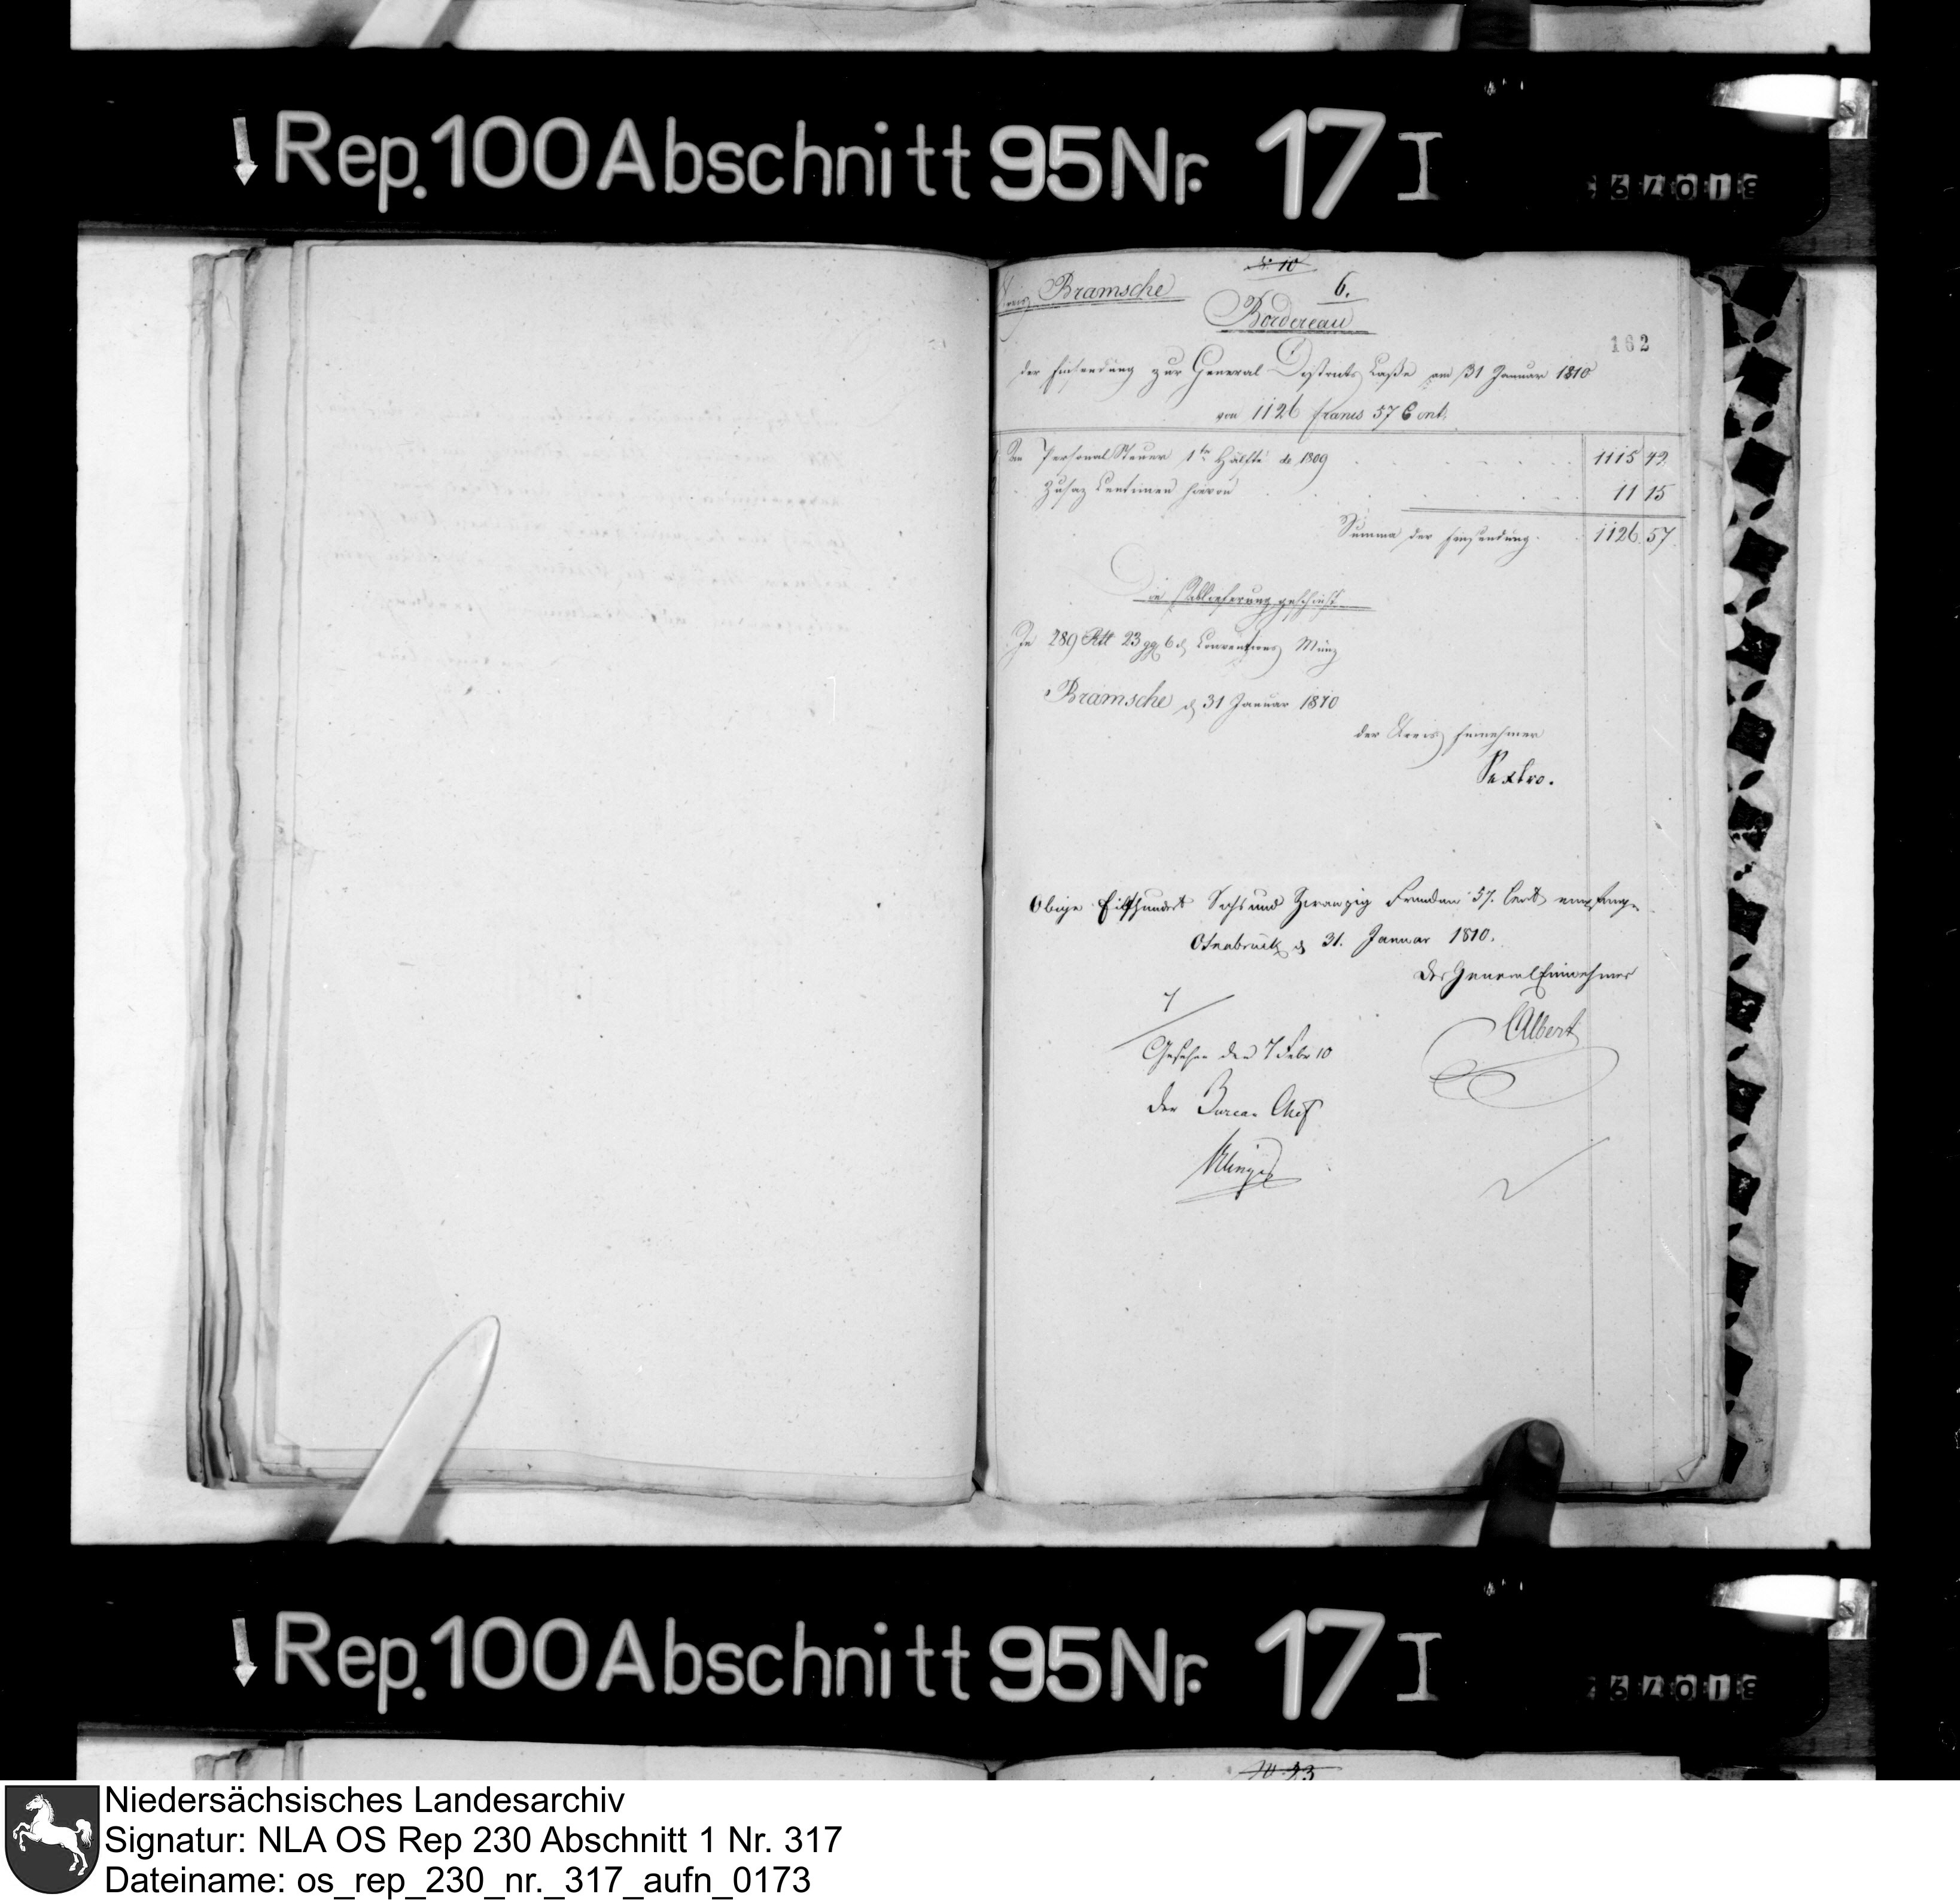 Rep. 100 Abschnitt 95 Nr. 17 I
N: 10
6.
Kreis Bramsche
Bordereau
162
der Einsendung zur General Districts Casse am 31 Januar 1810
von 1126 francs 57 Cent.
An Personal Steuer 1te Hälfte de 1809 1115 42
Zusaz Centimen hievon 11 15
Summa der Einsendung 1126 57
Die Ablieferung geschieht
In 289 Rtt 23 gg 6 d Conventions Münz
Bramsche d 31 Januar 1810
der Kreis Einnehmer
Sextro.
Obige Eilfhundert Sechs und Zwanzig Franken 57. Cent empfangen
Osnabrück d 31. Januar 1810.
Der General Einnehmer
Albert
7
Gesehen den 7 Febr 10
der Bureau Chef
Rep. 100 Abschnitt 95 Nr. 17 I
Niedersächsisches Landesarchiv
Signatur: NLA OS Rep 230 Abschnitt 1 Nr. 317
Dateiname: os_rep_230_nr._317_aufn_0173